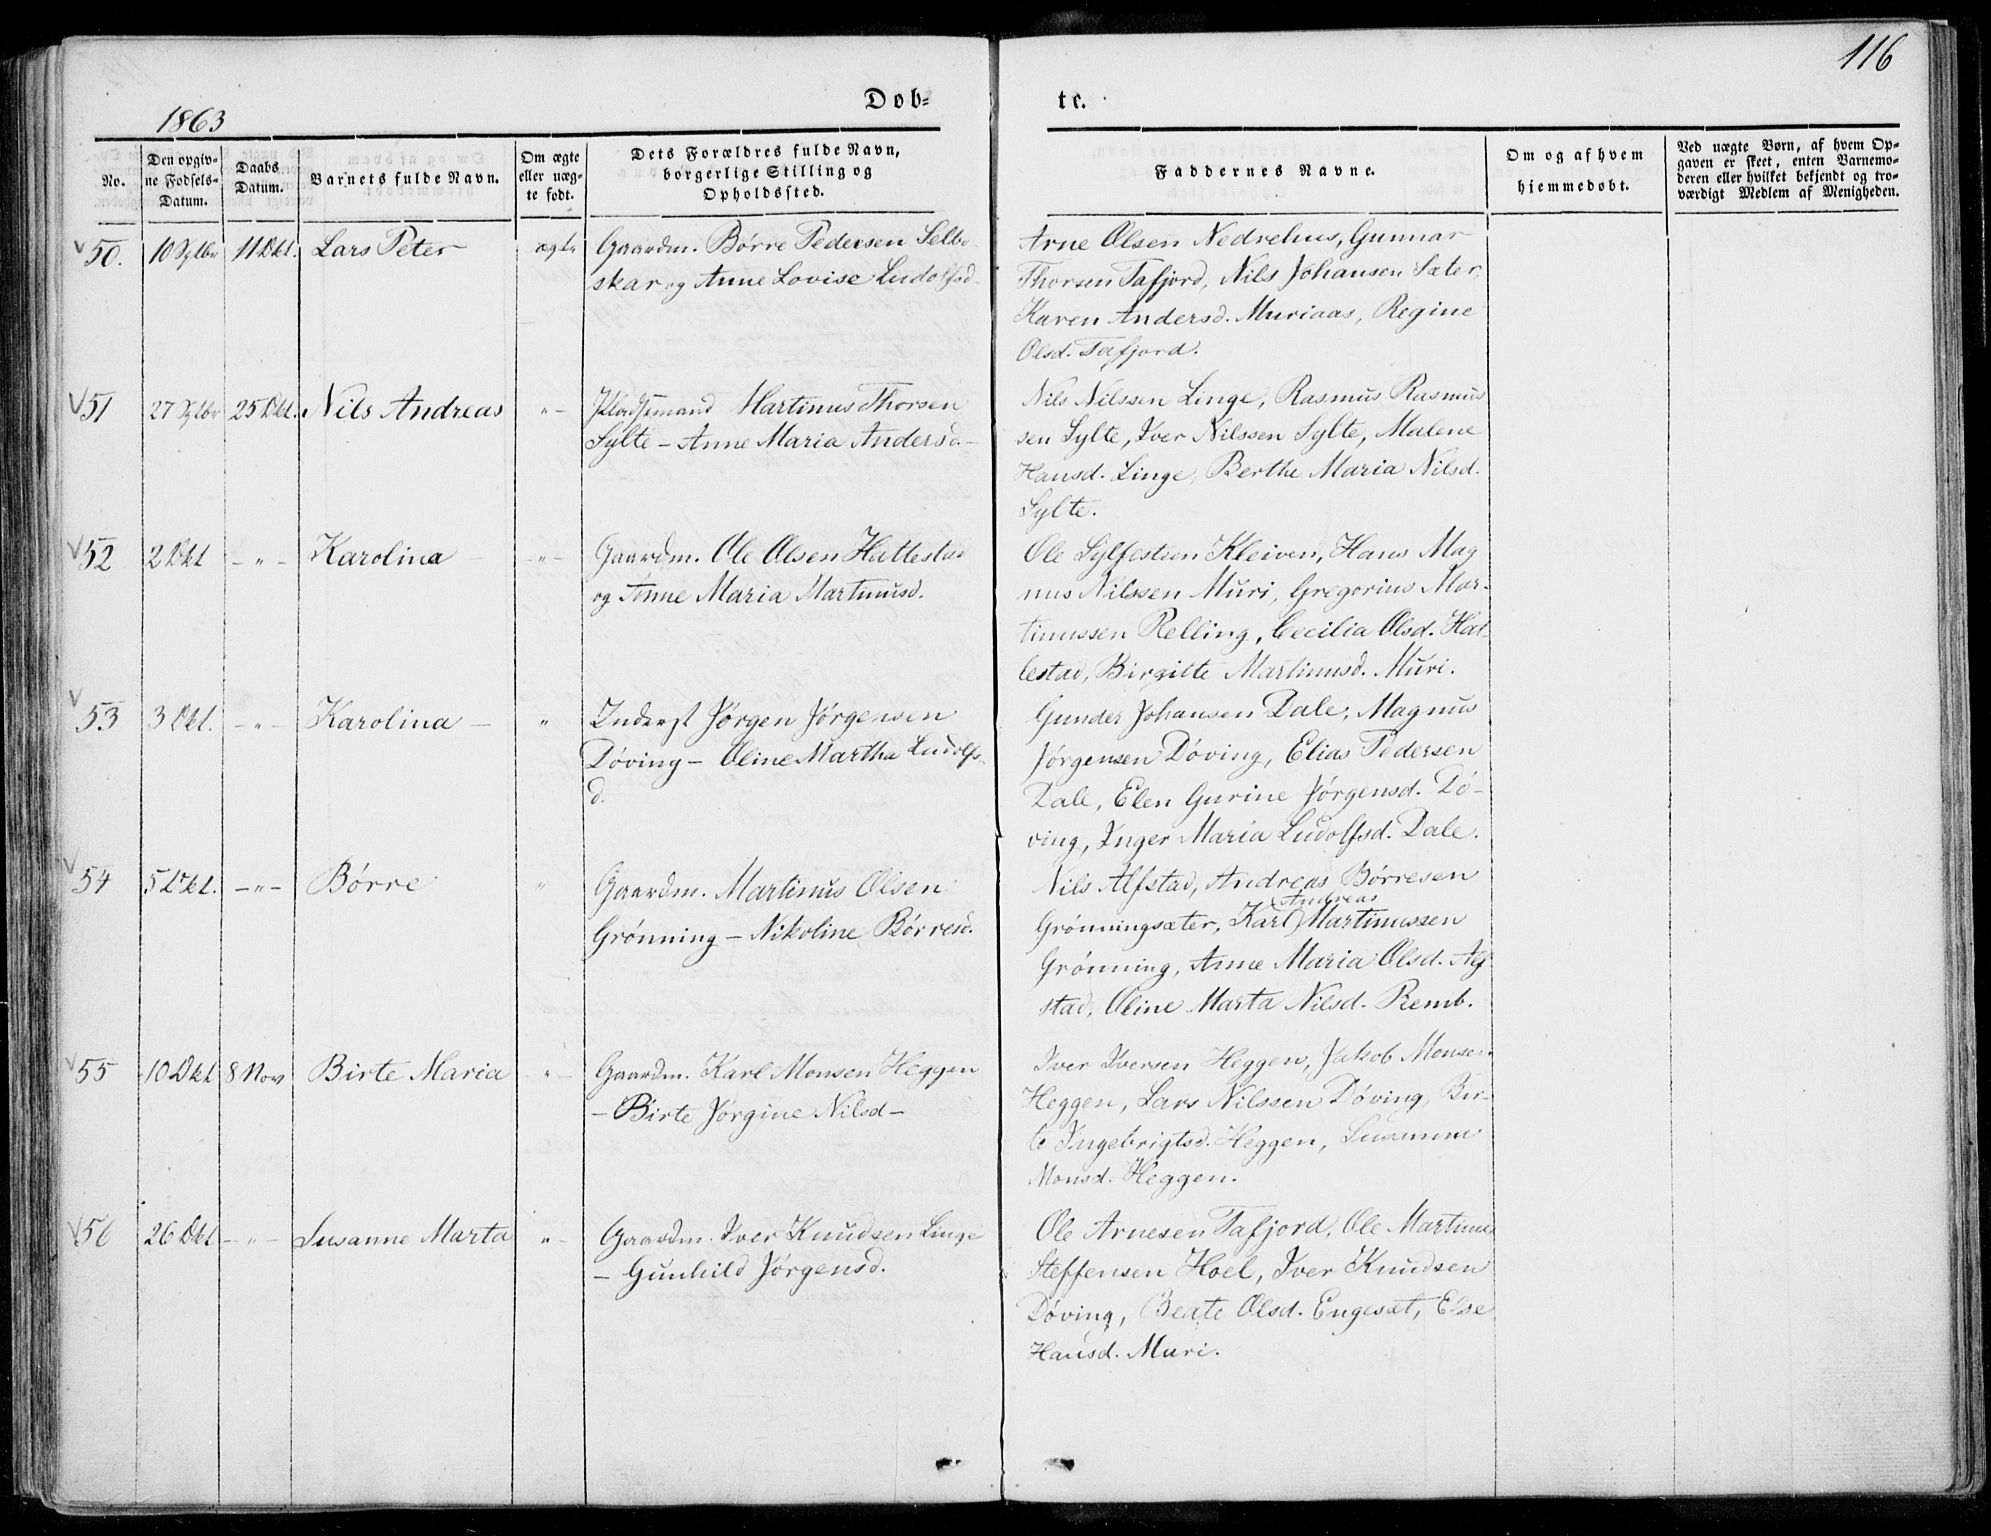 116
Døb=
te.
1863
No.
Den opgiv-
ne Fødsels-
Datum.
Daabs
Datum.
Barnets fulde Navn.
Om ægte
eller uæg-
te født.
Dets Forældres fulde Navn,
borgerlige Stilling og
Opholdssted.
Faddernes Navne.
Om og af hvem
hjemmedøbt.
Ved uægte Børn, af hvem Op-
gaven er skeet, enten Barnemo-
deren eller hvilket bekjendt og tro-
værdigt Medlem af Menigheden.
50. 10 Sptbr 11 Okt. Lars Peter ægte Gaardm. Børre Pedersen Selbo-
skar og Anne Lovise Ludolfsd.
Arne Olsen Nedrehus, Gunnar
Thorsen Tafjord, Nils Johansen Sæter,
Karen Andersd. Muriaas, Regine
Olsd. Tafjord.
51 27 Sptbr 25 Okt. Nils Andreas -"- Pladsemand Martinus Thorsen
Sylte - Anne Maria Andersd.-
Nils Nilssen Linge, Rasmus Rasmus
sen Sylte, Iver Nilssen Sylte, Malene
Hansd. Linge, Berthe Maria Nilsd.
Sylte.
52 2 Okt -"- Karolina -"- Gaardm. Ole Olsen Hattestad
og Anne Maria Martinusd.
Ole Sylfesteen Kleiven, Hans Mag
nus Nilssen Muri, Gregorius Mar-
tinussen Relling, Cecilia Olsd. Hat-
lestad, Birgitte Martinusd. Muri.
53 3 Okt. -"- Karolina - " Inderst Jørgen Jørgensen
Døving - Oline Martha Ludolfs-
d.
Gunder Johansen Dale, Magnus
Jørgensen Døving, Elias Pedersen
Dale, Elen Gurine Jørgensd. Dø-
ving, Inger Maria Ludolfsd. Dale.
54 5 Okt. -"- Børre " Gaardm. Martinus Olsen
Grønning - Nikoline Børresd.
Nils Alfstad, Andreas Børresen
Andreas
Grønningsæter, Karl Martinussen
Grønning, Anne Maria Olsd. Alf
stad, Oline Marta Nilsd. Remb.
55 10 Okt 8 Nov Birte Maria " Gaardm. Karl Monsen Heggen
- Birte Jørgine Nilsd -
Iver Iversen Heggen, Jakob Monsen
Heggen, Lars Nilssen Døving, Bir-
te Ingebrigtsd. Heggen, Susanne
Monsd. Heggen.
56 26 Okt -"- Susanne Marta " Gaardm. Iver Knudsen Linge
- Gunhild Jørgensd.
Ole Arnesen Tafjord, Ole Martinus
Steffensen Hoel, Iver Knudsen
Døving, Beate Olsd. Engeset, Else
Hansd. Muri.